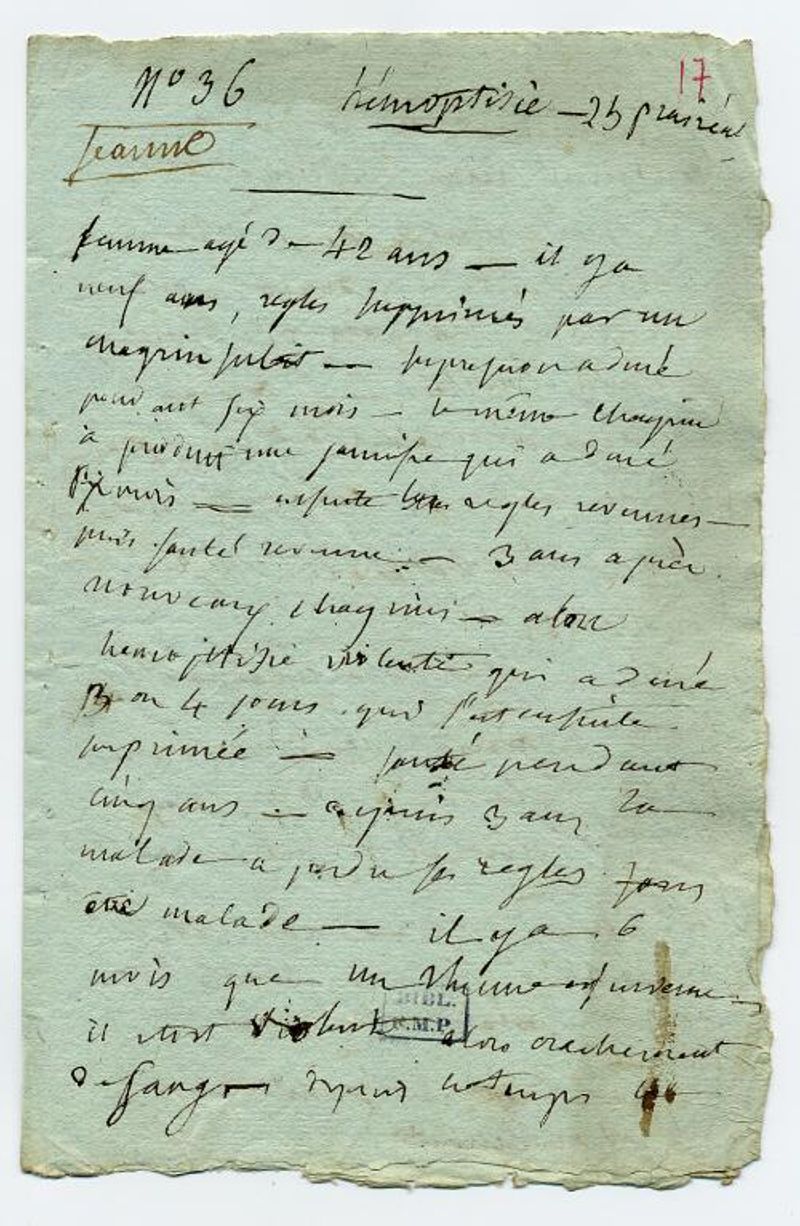 17
N° 36 hémoptisie — 25 prairéal
Jeanne
femme agé de 42 ans — il y a
neuf ans, regles supprimés par un
chagrin subit — supression a duré
pendant six mois — le même chagrin
à produit une jaunisse qui a duré
six mois — ensuite les regles revenues —
puis santé revenue — 3 ans après
nouveaux chagrins — alors
hemoptisie violente qui a duré
3 ou 4 jours qui s'est ensuite
suprimée — santé pendant
cinq ans — depuis 3 ans la
malade a perdu ses regles sans
être malade — il y a 6
mois que un rhume est survenu
BIBL.
F.M.P.
il était violent alors crachement
de sang — depuis ce temps